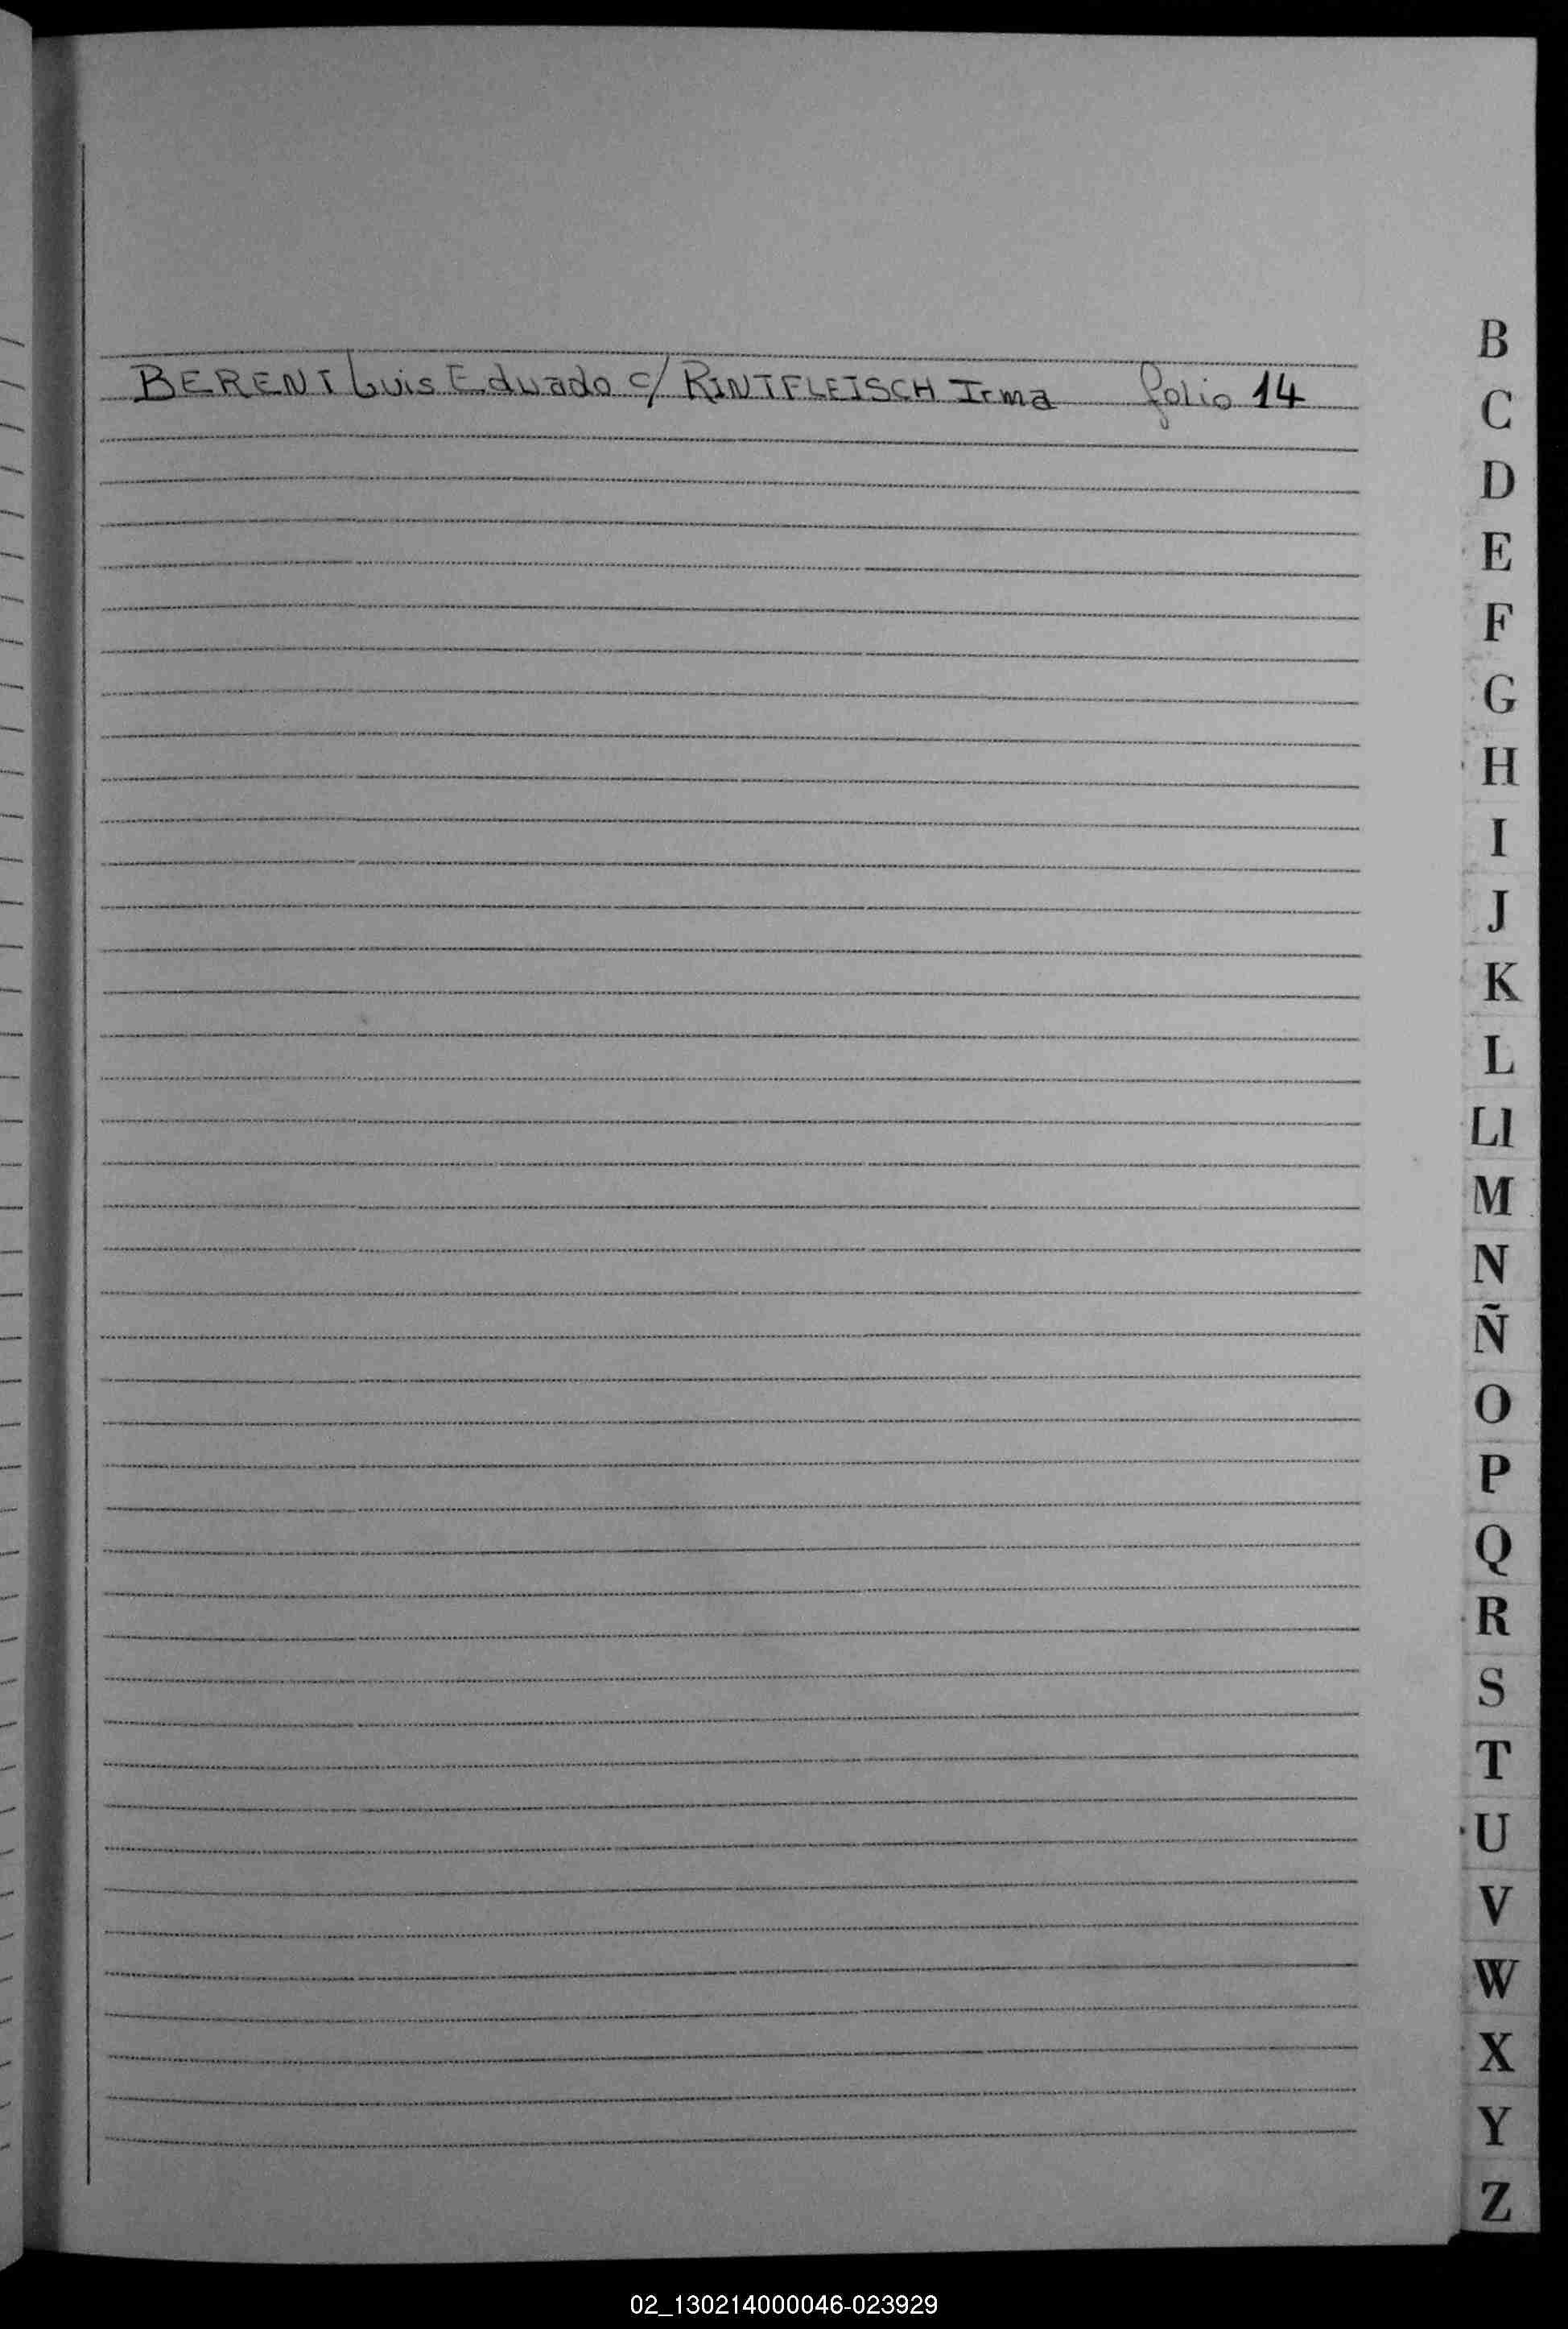 BERENT Luis Eduado c/ RINTFLEISCH Irma folio 14
B
C
D
E
F
G
H
I
J
K
L
Ll
M
N
Ñ
O
P
Q
R
S
T
U
V
W
X
Y
Z
02_130214000046-023929